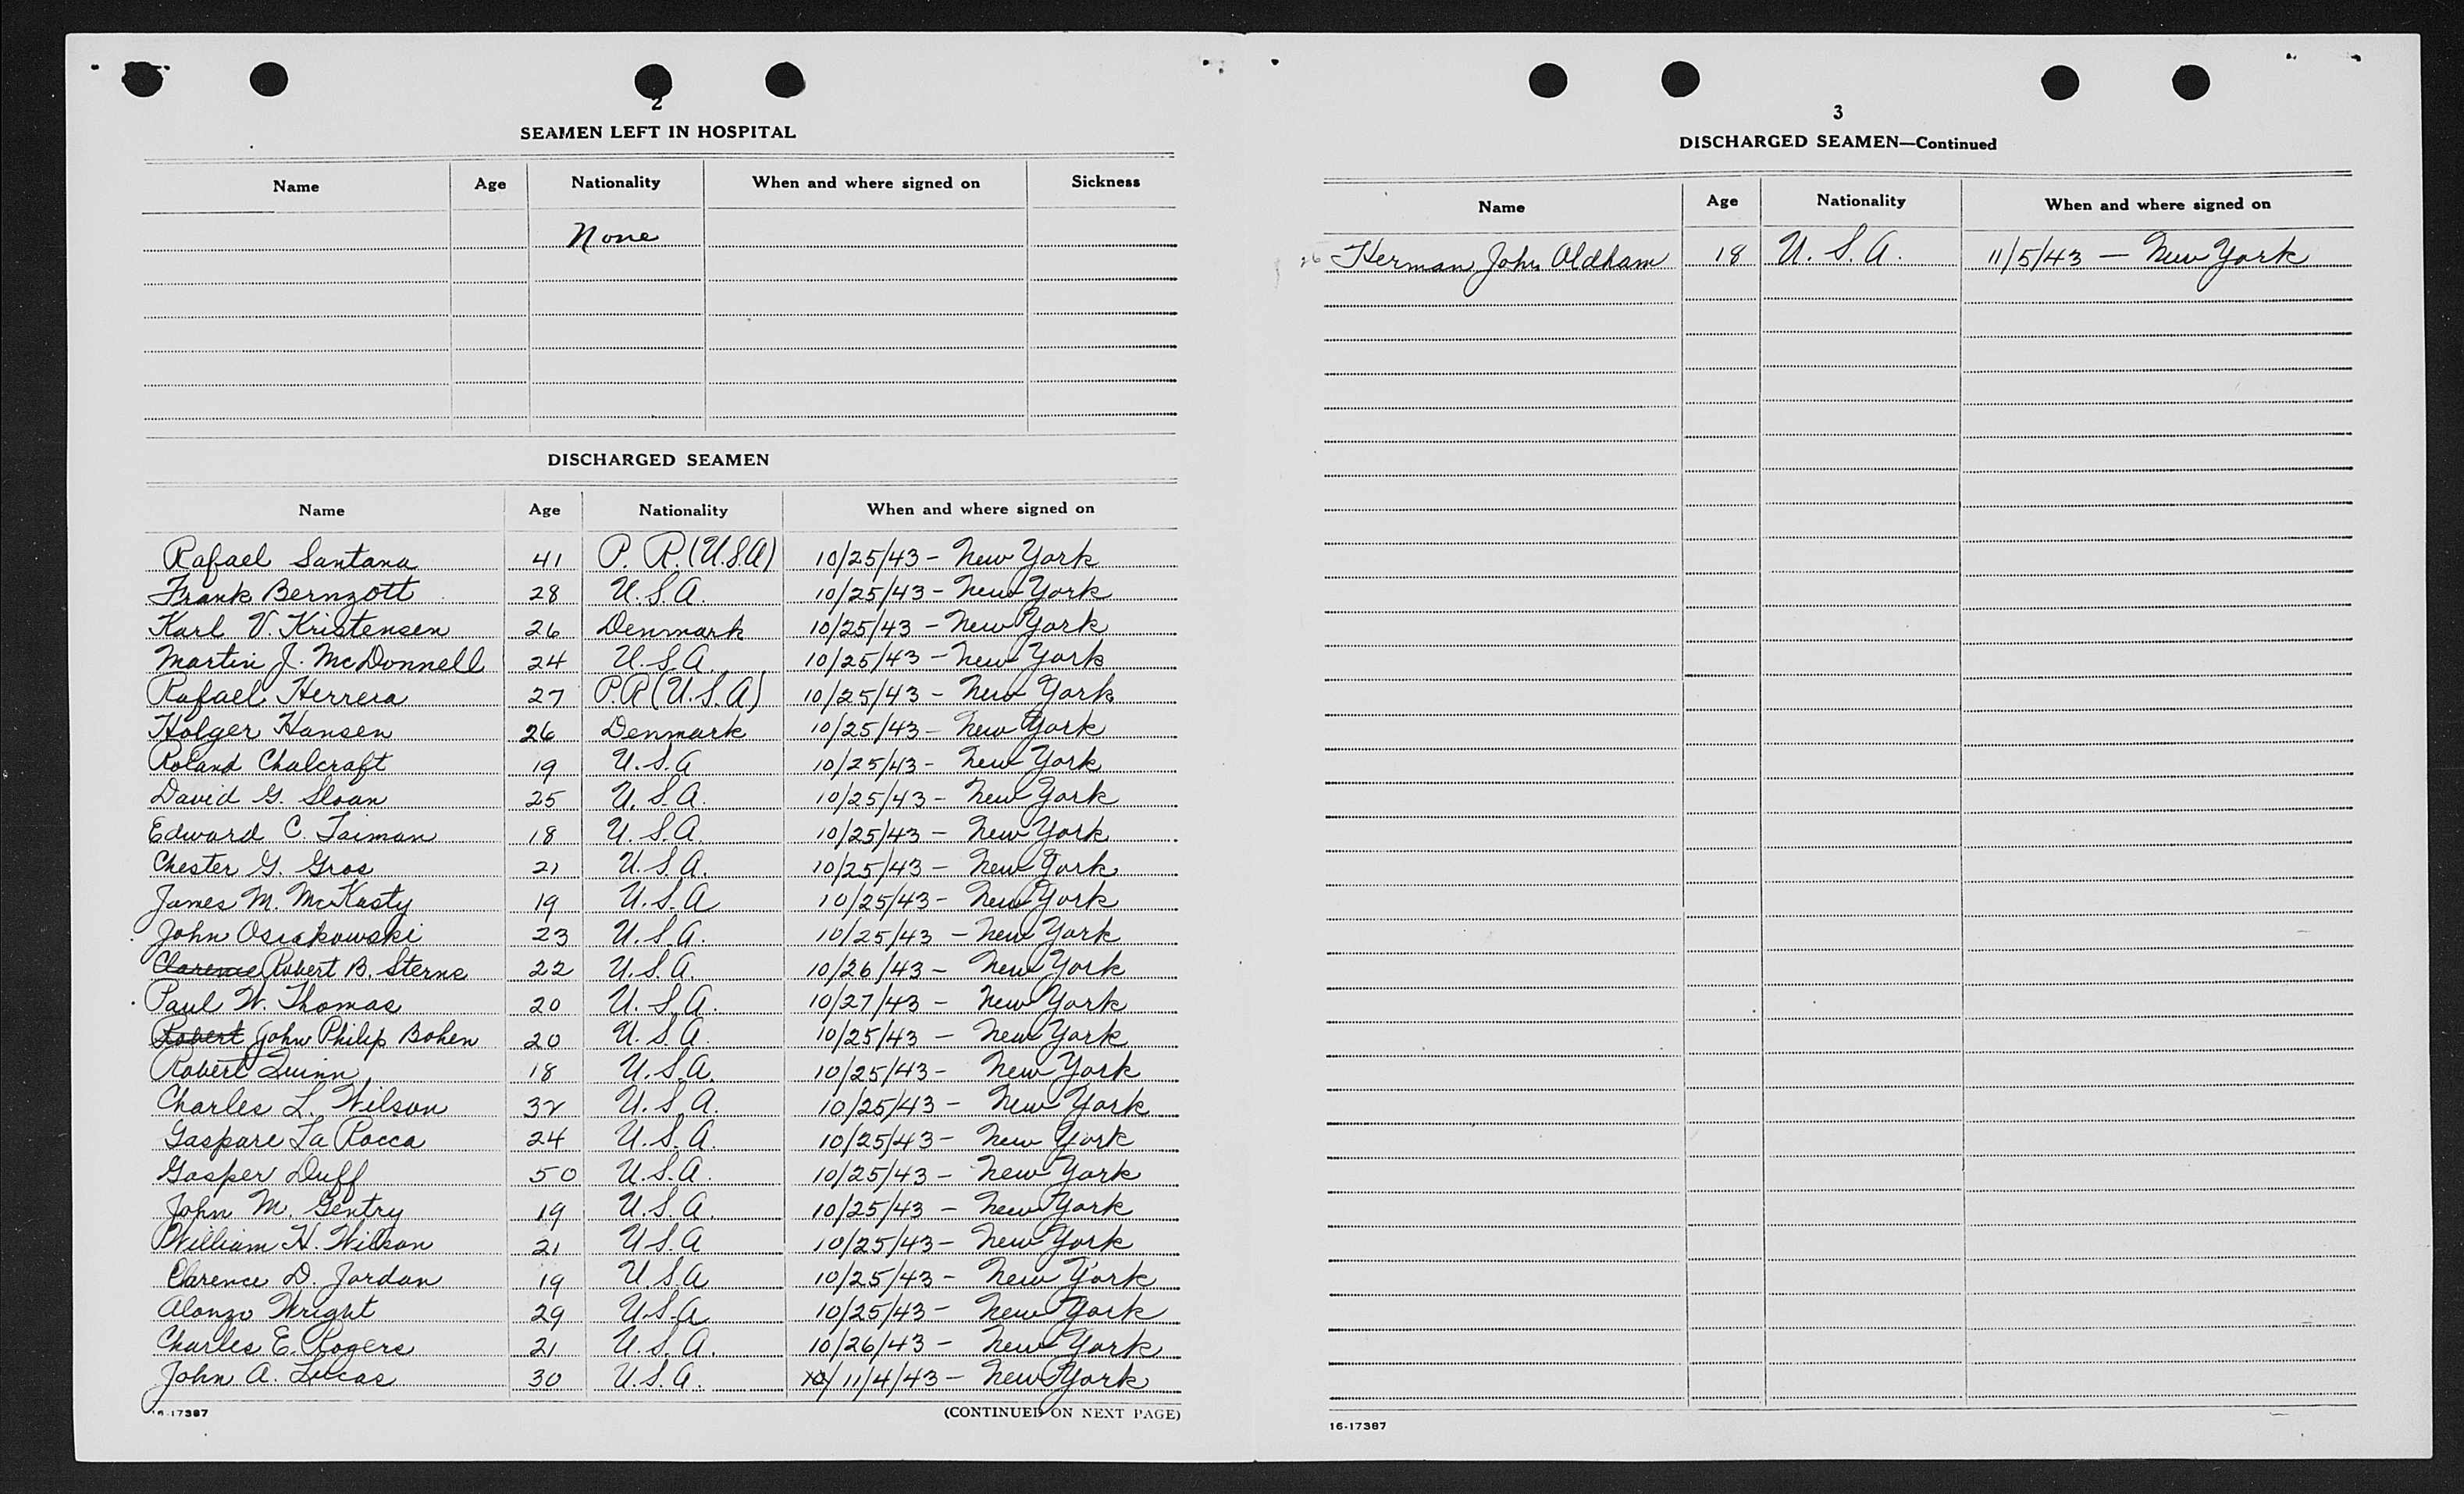 2
SEAMEN LEFT IN HOSPITAL
Name Age Nationality When and where signed on Sickness
None
DISCHARGED SEAMEN
Name Age Nationality When and where signed on
Rafael Santana 41 P. R. (U.S.A) 10/25/43 - New York
Frank Bernzott 28 U.S.A. 10/25/43 - New York
Karl V. Kristensen 26 Denmark 10/25/43 - New York
Martin J. McDonnell 24 U.S.A. 10/25/43 - New York
Rafael Herrera 27 P.R (U.S.A) 10/25/43 - New York
Holger Hansen 26 Denmark 10/25/43 - New York
Roland Chalcraft 19 U.S.A 10/25/43 - New York
David G. Sloan 25 U.S.A. 10/25/43 - New York
Edward C. Taiman 18 U.S.A. 10/25/43 - New York
Chester G. Gros 21 U.S.A. 10/25/43 - New York
James M. McKasty 19 U.S.A 10/25/43 - New York
John Osiakowski 23 U.S.A. 10/25/43 - New York
Clarence Robert B. Sterns 22 U.S.A. 10/26/43 - New York
Paul W. Thomas 20 U.S.A. 10/27/43 - New York
Robert John Philip Bohen 20 U.S.A. 10/25/43 - New York
Robert Quinn 18 U.S.A. 10/25/43 - New York
Charles L. Wilson 32 U.S.A. 10/25/43 - New York
Gaspare La Rocca 24 U.S.A. 10/25/43 - New York
Gasper Duff 50 U.S.A. 10/25/43 - New York
John M. Gentry 19 U.S.A. 10/25/43 - New York
William H. Wilson 21 U.S.A 10/25/43 - New York
Clarence D. Jordan 19 U.S.A 10/25/43 - New York
Alonzo Wright 29 U.S.A. 10/25/43 - New York
Charles E. Rogers 21 U.S.A. 10/26/43 - New York
John A. Lucas 30 U.S.A. 10/ 11/4/43 - New York
16-17387 (CONTINUED ON NEXT PAGE)
3
DISCHARGED SEAMEN—Continued
Name Age Nationality When and where signed on
26 Herman John Oldham 18 U.S.A. 11/5/43 — New York
16-17387